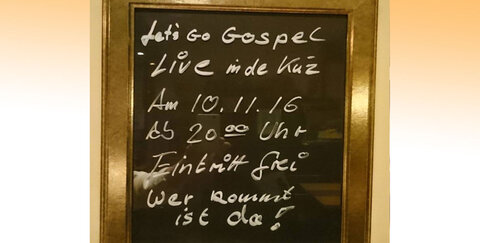 Let's Go Gospel
Live in de Küz
Am 10.11.16
Ab 20 00 Uhr
Eintritt frei
Wer kommt
ist da!